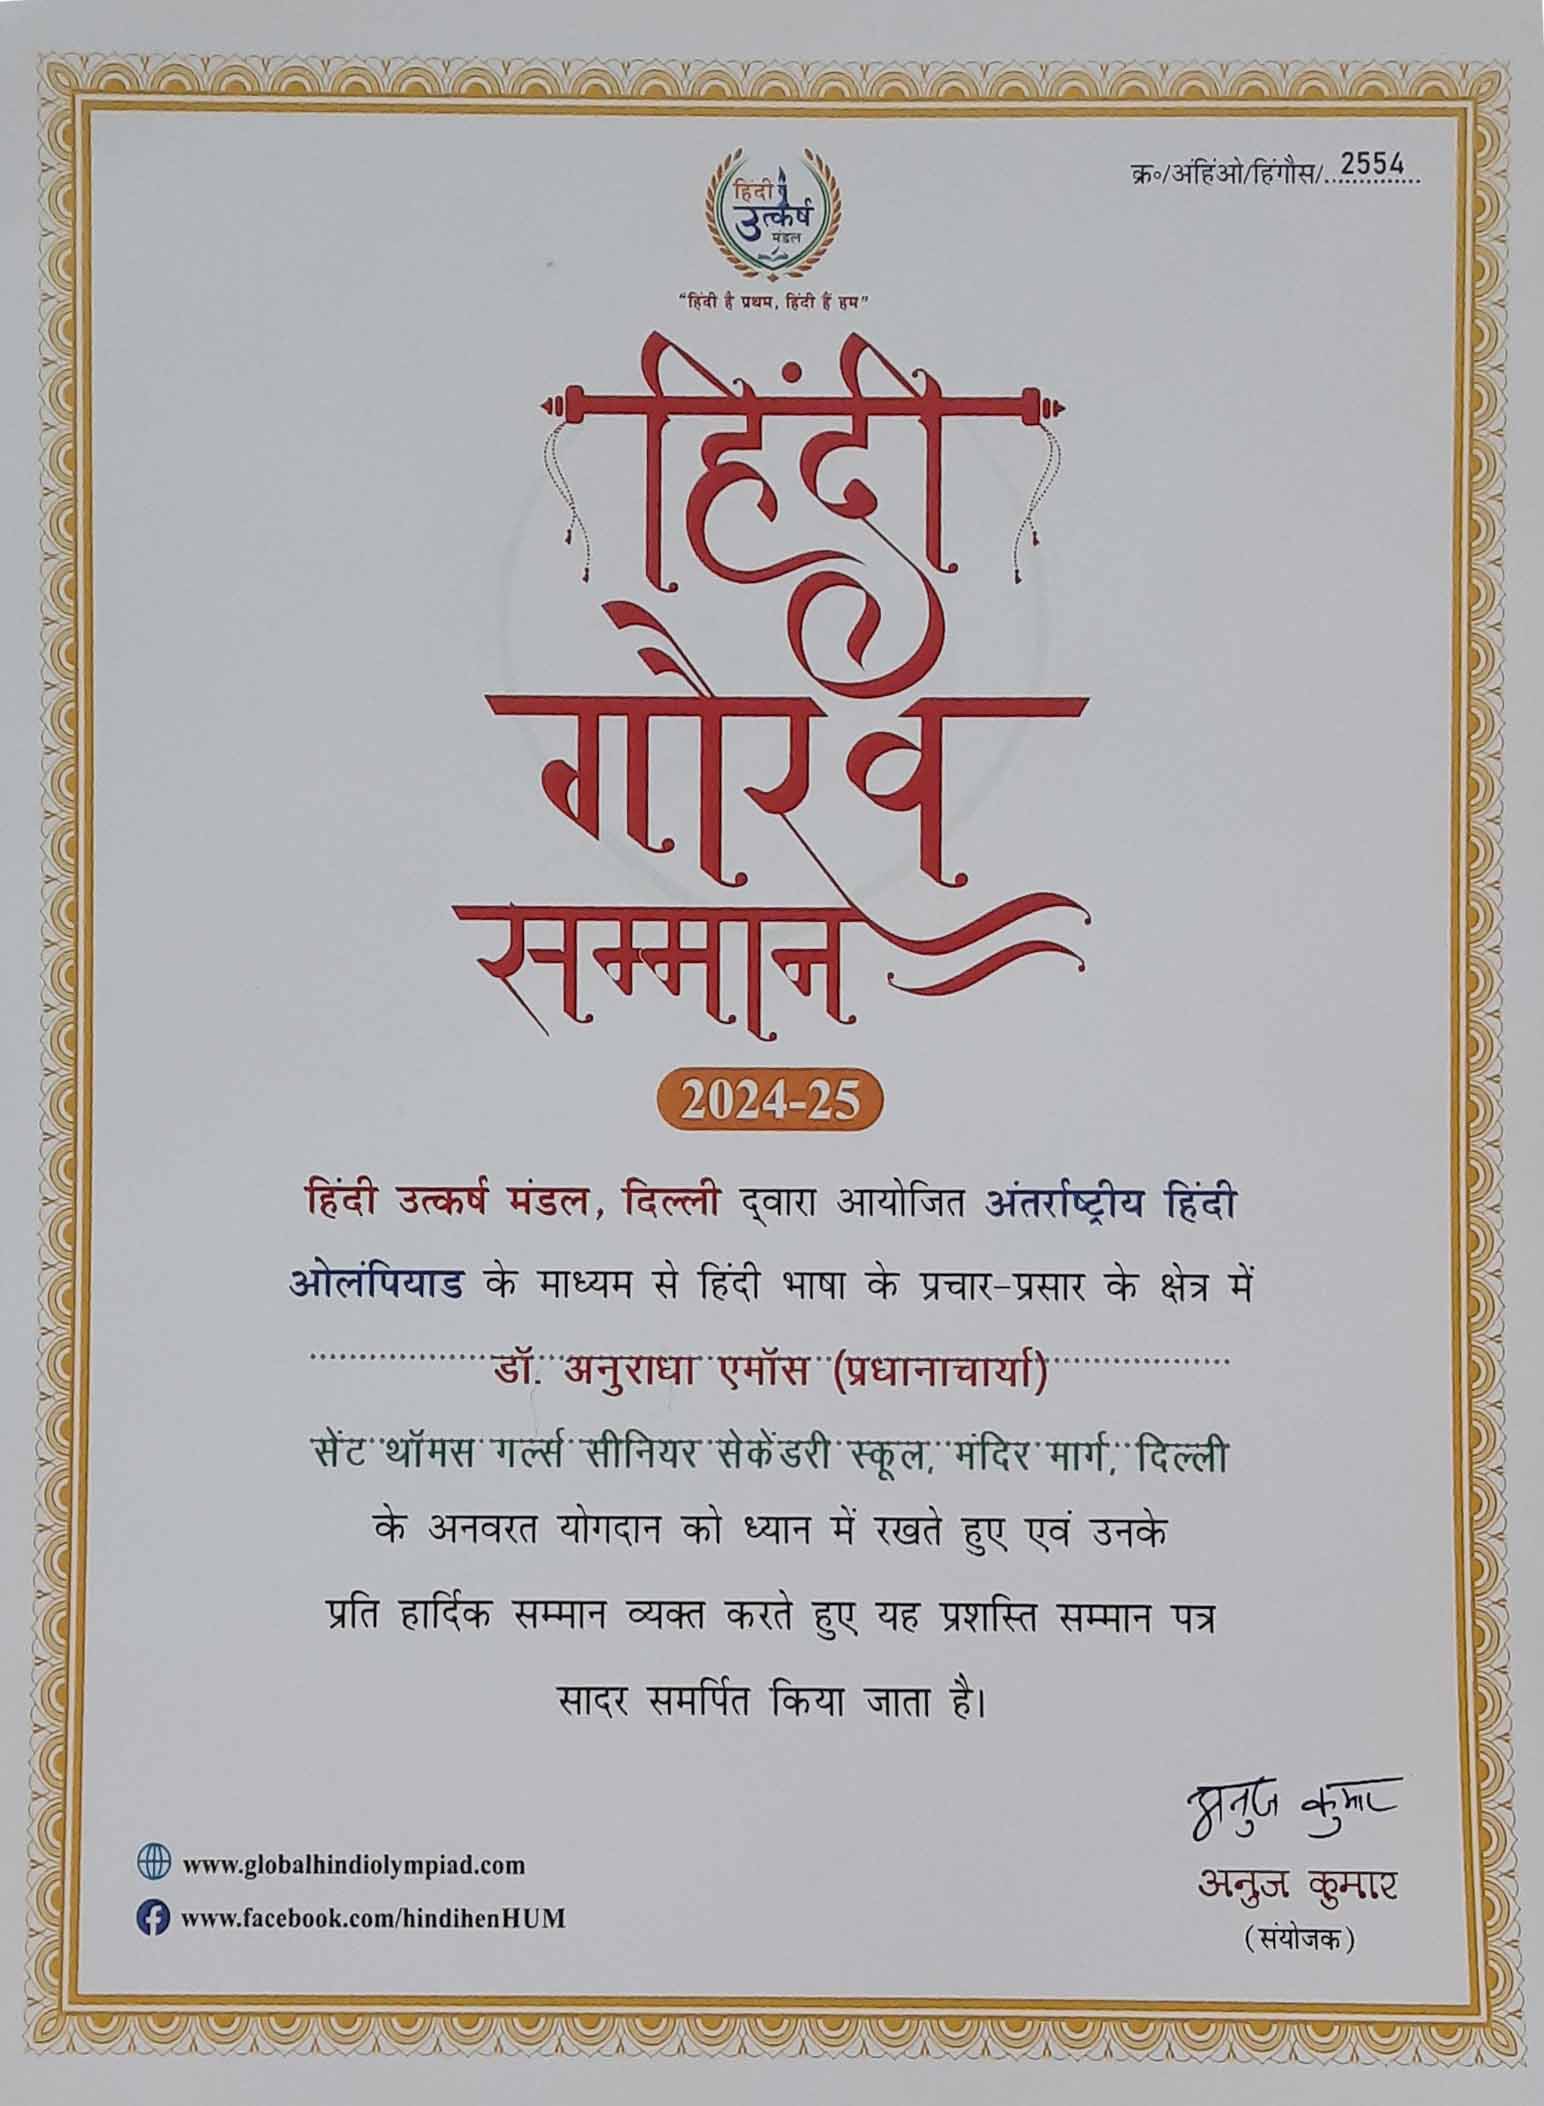 क्र०/अंहिंओ/हिंगौस/..............2554
हिंदी
उत्कर्ष
मंडल
"हिंदी है प्रथम, हिंदी हैं हम"
हिंदी
गौरव
सम्मान
2024-25
हिंदी उत्कर्ष मंडल, दिल्ली द्वारा आयोजित अंतर्राष्ट्रीय हिंदी
ओलंपियाड के माध्यम से हिंदी भाषा के प्रचार-प्रसार के क्षेत्र में
डॉ. अनुराधा एमॉस (प्रधानाचार्या)
सेंट थॉमस गर्ल्स सीनियर सेकेंडरी स्कूल, मंदिर मार्ग, दिल्ली
के अनवरत योगदान को ध्यान में रखते हुए एवं उनके
प्रति हार्दिक सम्मान व्यक्त करते हुए यह प्रशस्ति सम्मान पत्र
सादर समर्पित किया जाता है।
अनुज कुमार
अनुज कुमार
(संयोजक)
www.globalhindiolympiad.com
www.facebook.com/hindihenHUM